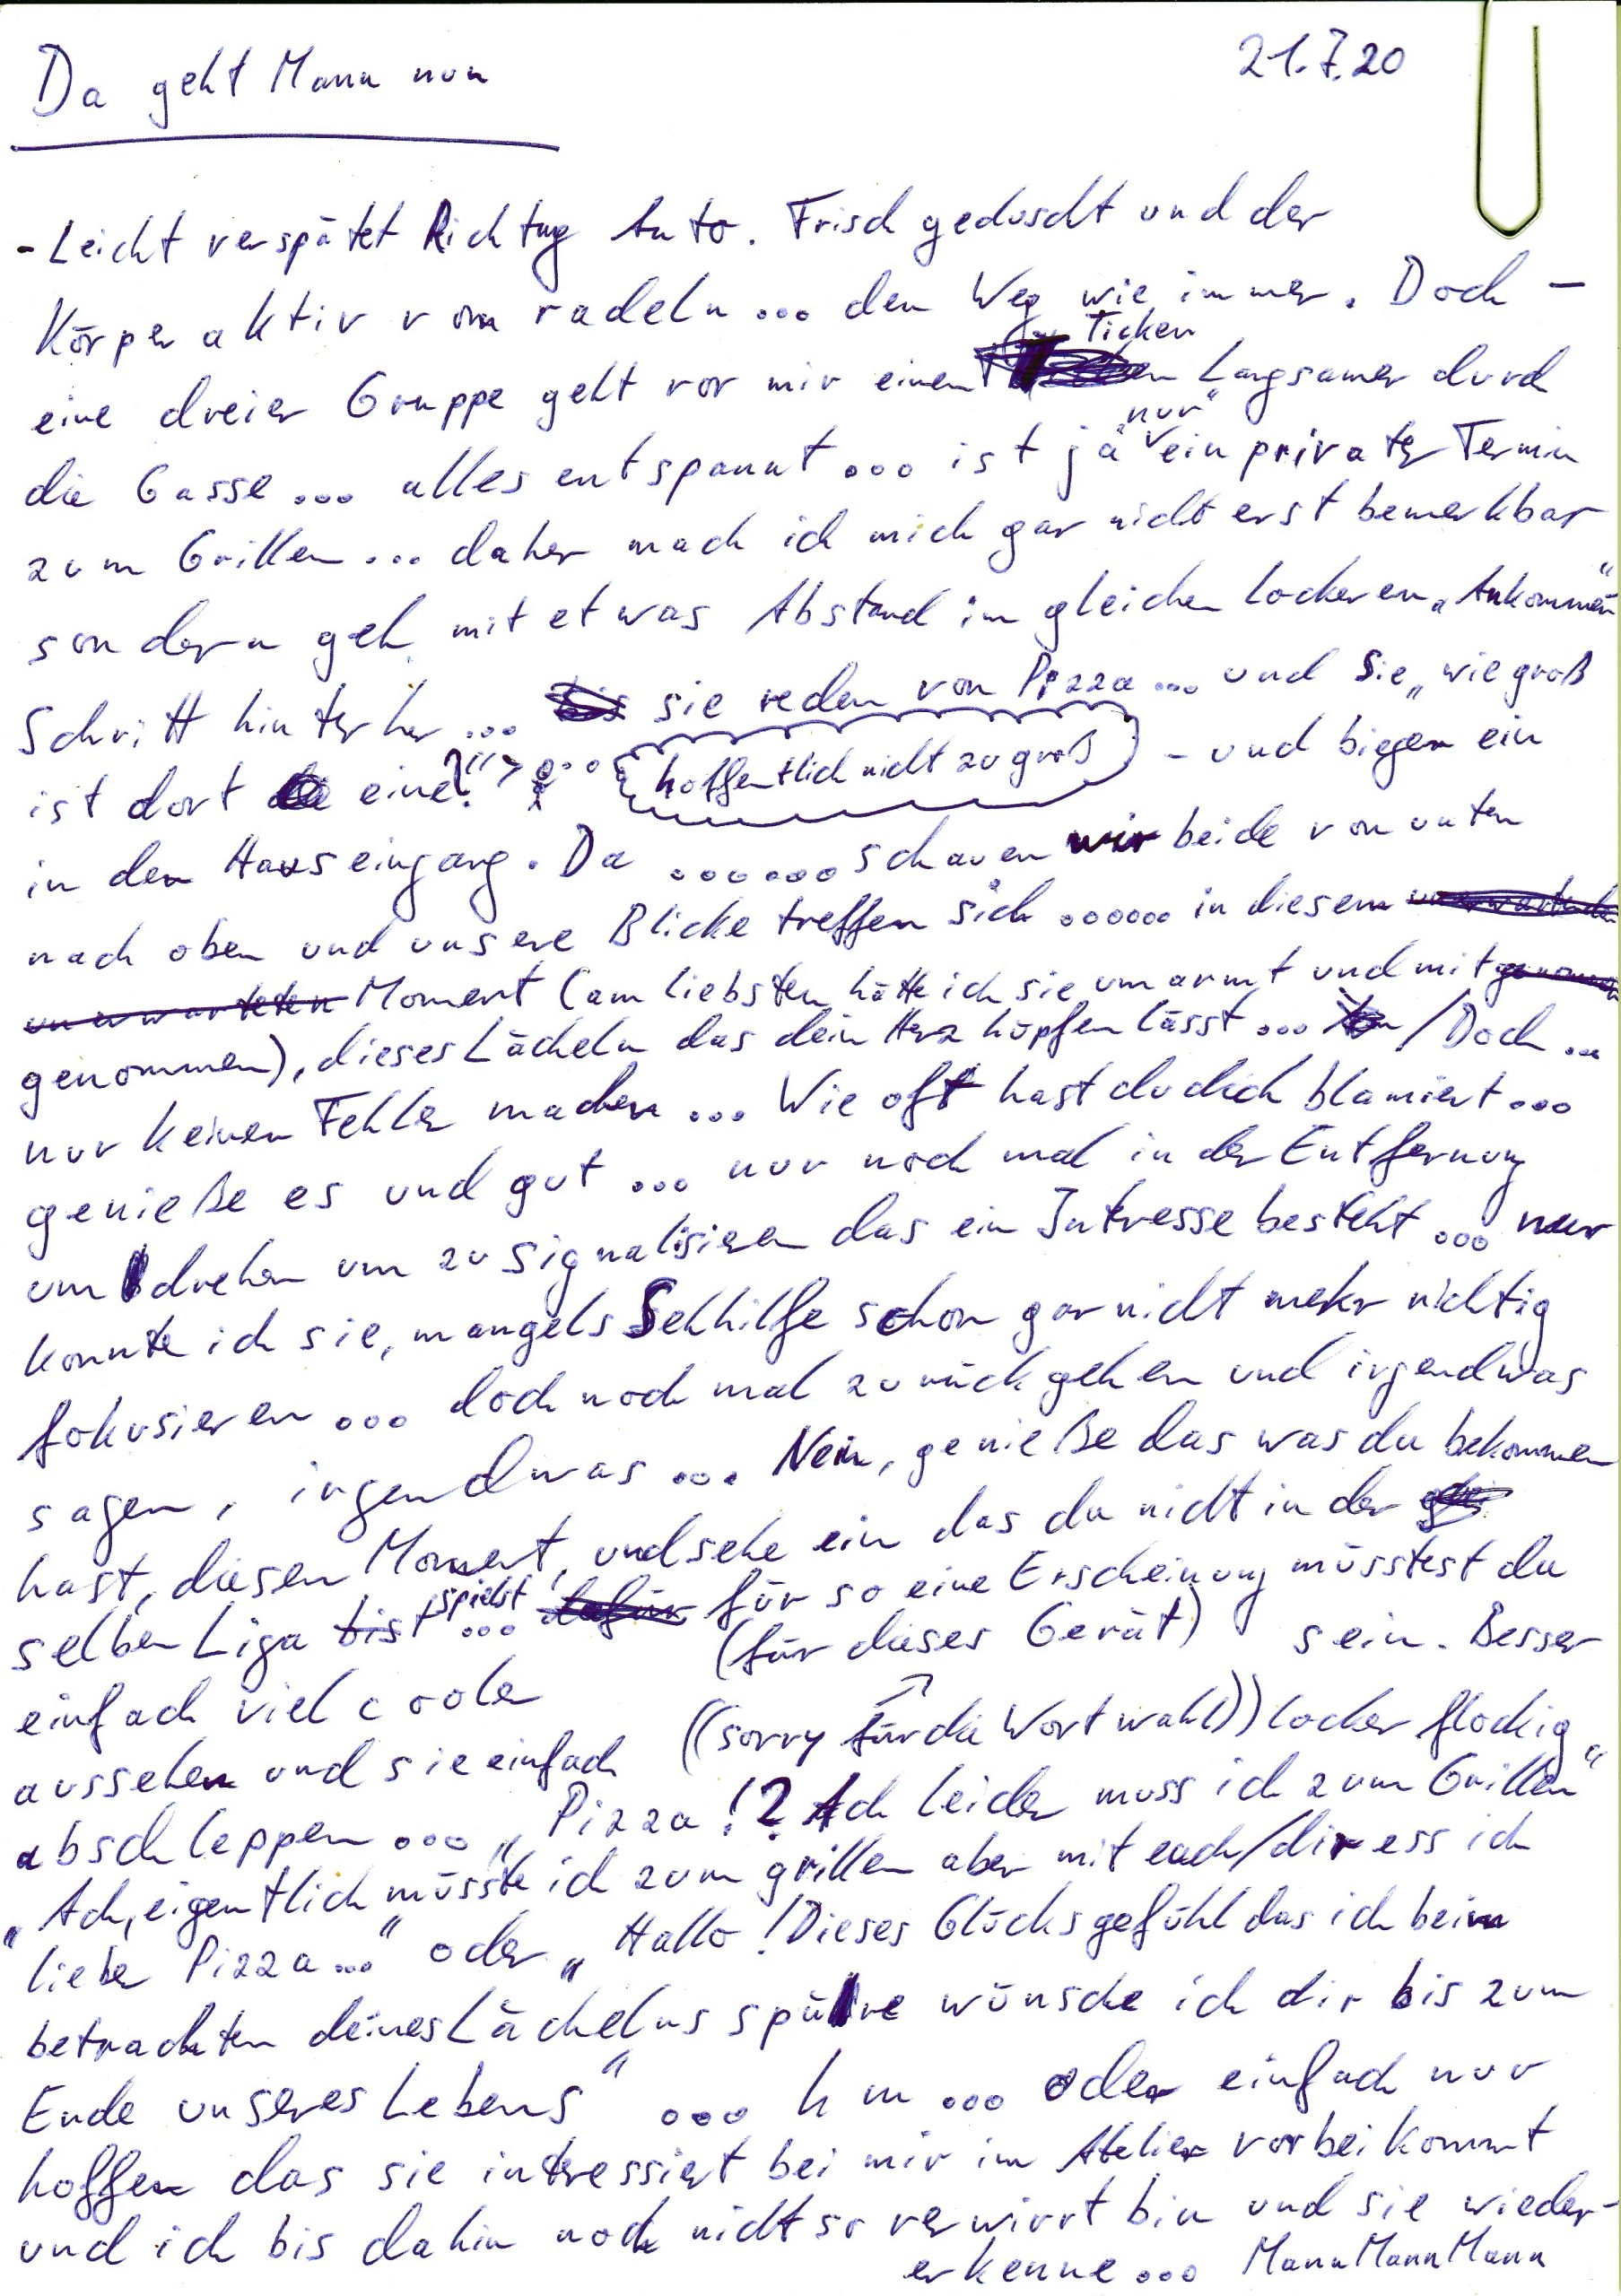 Da geht Mann nun
21.7.20
- Leicht verspätet Richtug Auto. Frisch geduscht und der
Körper aktiv vom radeln ... den Weg wie immer. Doch -
eine dreier Gruppe geht vor mir einen Ticken Langsamer durch
die Gasse ... alles entspannt ... ist ja "nur" ein privater Termin
zum Grillen ... daher mach ich mich gar nicht erst bemerkbar
sondern geh mit etwas Abstand im gleichen lockeren „Ankommen"
Schritt hinterher ... sie reden von Pizza ... und Sie „wie groß
ist dort eine?" > ... hoffentlich nicht zu groß - und biegen ein
in den Hauseingang. Da ...... schauen wir beide von unten
nach oben und unsere Blicke treffen sich ...... in diesem
unerwarteten Moment (am liebsten hätte ich sie umarmt und mit
genommen), dieses Lächeln das dein Herz hüpfen lässt ... / Doch ...
nur keinen Fehler machen ... Wie oft hast du dich blamiert ...
genieße es und gut ... nur noch mal in der Entfernung
umdrehen um zu signalisieren das ein Intresse besteht ... nur
konnte ich sie, mangels Sehhilfe schon gar nicht mehr richtig
fokusieren ... doch noch mal zurück gehen und irgendwas
sagen, irgendwas ... Nein, genieße das was du bekommen
hast, diesen Moment, und sehe ein das du nicht in der
selben Liga bist spielst ... dafür für so eine Erscheinung müsstest du
(für dieses Gerät) sein. Besser
einfach viel cooler
aussehen und sie einfach ((sorry für die Wortwahl)) locker flockig
abschleppen ... „Pizza!? Ach leider muss ich zum Grillen"
„Ach, eigentlich müsste ich zum grillen aber mit euch/dir ess ich
lieber Pizza ..." oder „Hallo! Dieses Glücksgefühl das ich beim
betrachten deines Lächelns spüre wünsche ich dir bis zum
Ende unseres Lebens" ... hm ... oder einfach nur
hoffen das sie intressiert bei mir im Atelier vorbei kommt
und ich bis dahin noch nicht so verwirrt bin und sie wieder-
erkenne ... MannMannMann